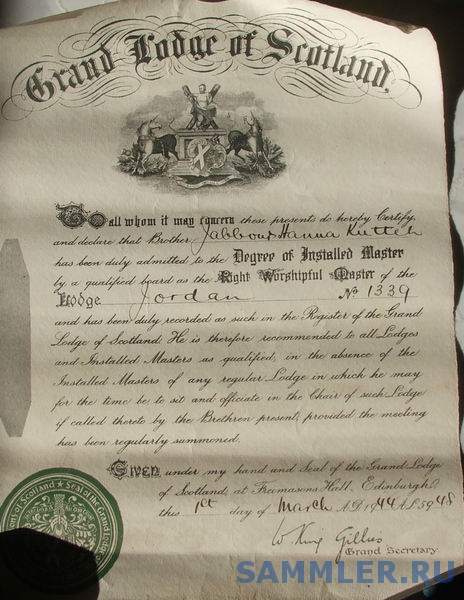 Grand Lodge of Scotland.
To all whom it may concern these presents do hereby Certify,
and declare that Brother Jabbour Hanna Kutteh
has been duly admitted to the Degree of Installed Master
by a qualified board as the Right Worshipful Master of the
Lodge Jordan No 1339
and has been duly recorded as such in the Register of the Grand
Lodge of Scotland He is therefore recommended to all Lodges
and Installed Masters as qualified, in the absence of the
Installed Masters of any regular Lodge in which he may
for the time be to sit and officiate in the Chair of such Lodge
if called thereto by the Brethren present, provided the meeting
has been regularly summoned.
Given under my hand and Seal of the Grand Lodge
of Scotland, at Freemasons Hall, Edinburgh
this 1st day of March A.D. 1944 A.L. 5948
W. King Gillies
Grand Secretary.
of Scotland ★ Seal of the Grand Lodge
SAMMLER.RU